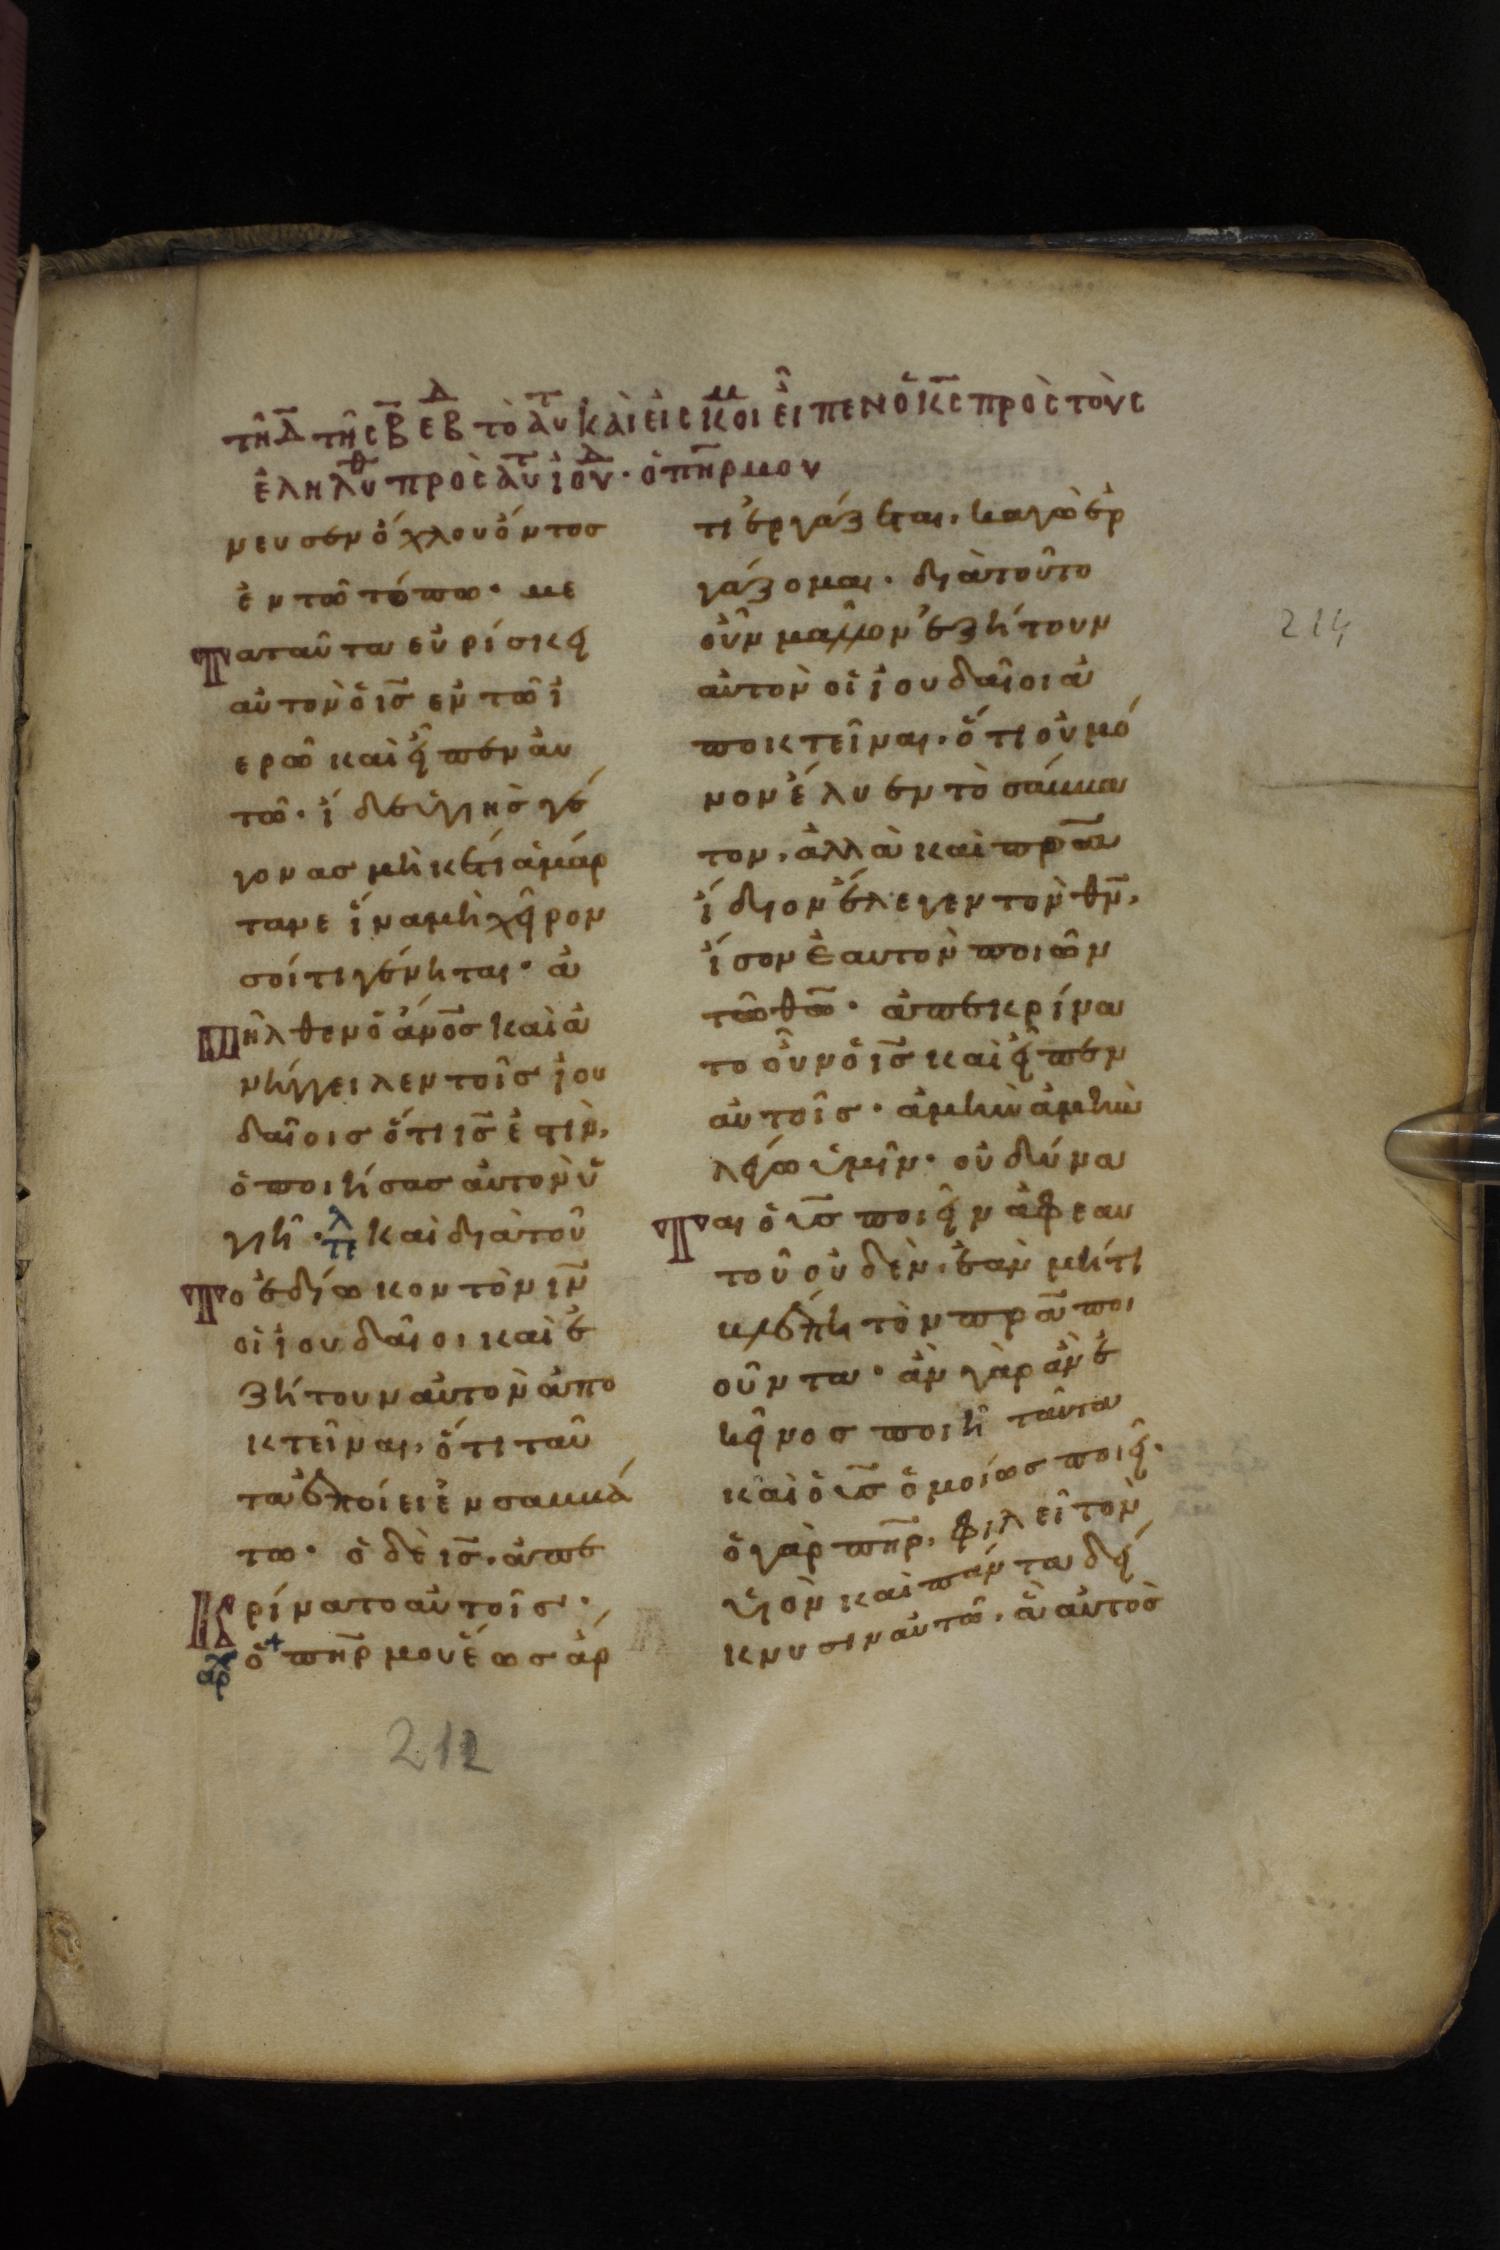 τῆ Δ̅ τῆς Β̅ ΕΒΔ τὸ ἀυτ κὰι ἐις κοιμ εἶπεν ὁ κ̅ς πρὸς τοὺς
ἐληλυθ πρὸς ἀυτ ἰουδ· ὁ πη̅ρ μου
νευσεν ὄχλου ὄντος
ἐν τῶ τόπω· με
Τατα̂υτα εὑρίσκει
αὐτὸν ὁ ι̅ς ἐν τῶ ἱ
ερῶ καὶ εἶπεν αυ
τῶ· ἴδε ὑγιὴς γέ
γονας μὴκέτι ἁμάρ
τανε ἵνα μὴ χεῖρον
σοί τι γένηται· ἀ
Πῆλθεν ὁ α̅νος καὶ ἀ
νήγγειλεν τοῖς ἰου
δαίοις ὅτι ι̅ς ἐστιν,
ὁ ποιήσας αὐτὸν ὑ
γιῆ· τελ καὶ διὰ τοῦ
Το ἐδίωκον τὸν ι̅ν
οἱ ἰουδαῖοι καὶ ἐ
ζήτουν αὐτὸν ἀπο
κτεῖναι, ὅτι ταῦ
τα ἐποίει ἐν σαββά
τω· ὁ δὲ ι̅ς, ἀπε
Κρίνατο αὐτοῖς·
αρχ ὁ + πη̅ρ μου ἕως ἄρ
212
τι ἐργάζεται, καγὼ ἐρ
γάζομαι· διὰ τοῦτο
οὖν μᾶλλον ἐζήτουν
αὐτὸν οἱ ἰουδαῖοι ἀ
ποκτεῖναι· ὅτι οὐ μό
νον έλυεν τὸ σάββα
τον, ἀλλὰ καὶ πρ̅α
ίδιον έλεγεν τὸν θ̅ν,
ίσον ἑαυτὸν ποιῶν
τῶ θ̅ω· ἀπεκρίνα
το οὖν ὁ ι̅ς καὶ εἶπεν
αὐτοῖς· ἀμὴν ἀμὴν
λέγω ὑμῖν· οὐ δύνα
Ται ὁ υ̅ς ποιεῖν ἀφ εαυ
τοῦ οὐδὲν, ἐὰν μή τι
βλέπη τὸν πρ̅α ποι
οῦντα· ἃν γὰρ ἂν ἐ
κεῖνος ποιῆ ταῦτα
καὶ ὁ υ̅ς ὁμοίως ποιεῖ·
ὁ γὰρ πη̅ρ, φιλεῖ τὸν
υἱὸν καὶ πάντα δεί
κνυσιν αὐτῶ, ἃ αὐτὸς
214